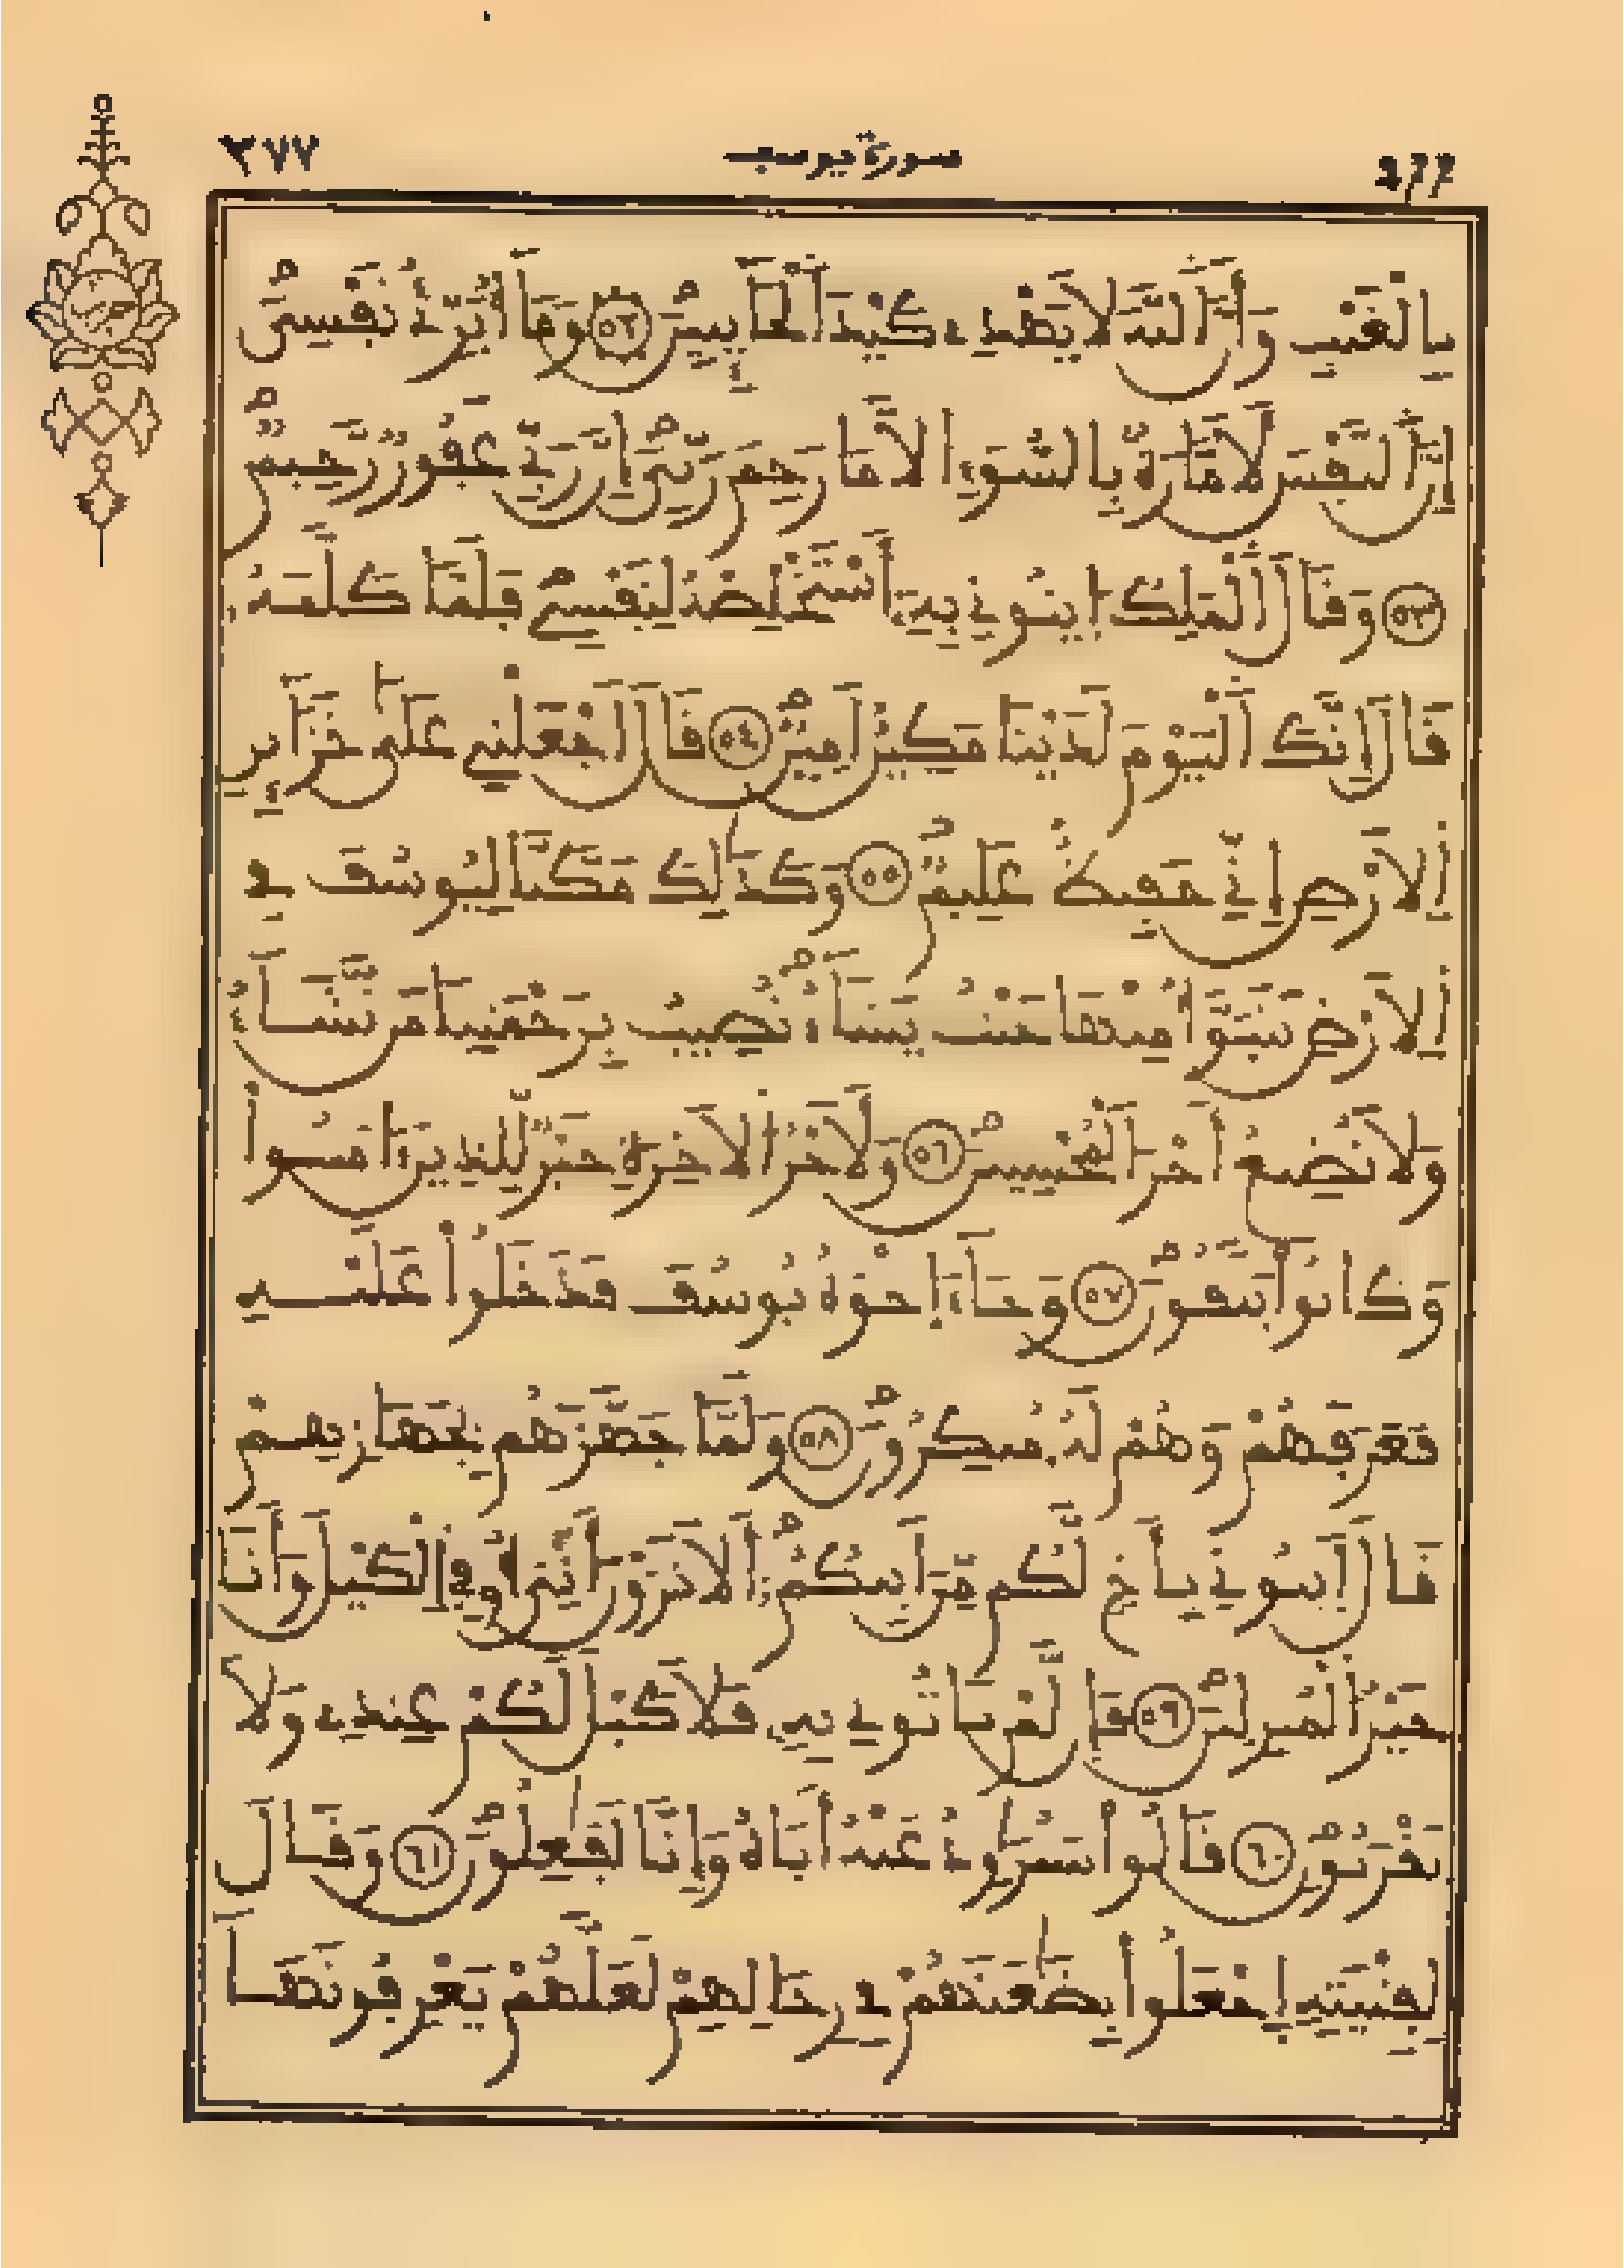 سورة يوسف
بِالْغَيْبِ وَأَنَّ اَللَّهَ لَا يَهْدِے كَيْدَ اَلْخَآئِنِينَ ٥٢ وَمَآ أُبَرِّئُ نَفْسِيَ
إِنَّ اَلنَّفْسَ لَأَمَّارَةُۢ بِالسُّوٓءِ اِلَّا مَا رَحِمَ رَبِّيَ إِنَّ رَبِّے غَفُورٌ رَّحِيمٌ
٥٣ وَقَالَ اَلْمَلِكُ اُيتُونِے بِهِۦٓ أَسْتَخْلِصْهُ لِنَفْسِے فَلَمَّا كَلَّمَهُۥ
قَالَ إِنَّكَ اَلْيَوْمَ لَدَيْنَا مَكِينٌ اَمِينٌ ٥٤ قَالَ اَجْعَلْنِے عَلَىٰ خَزَآئِنِ
اِلَارْضِ إِنِّے حَفِيظٌ عَلِيمٌ ٥٥ وَكَذَٰلِكَ مَكَّنَّا لِيُوسُفَ فِے
اِلَارْضِ يَتَبَوَّأُ مِنْهَا حَيْثُ يَشَآءُ نُصِيبُ بِرَحْمَتِنَا مَن نَّشَآءُ
وَلَا نُضِيعُ أَجْرَ اَلْمُحْسِنِينَ ٥٦ وَلَأَجْرُ اُلَاخِرَةِ خَيْرٌ لِّلذِينَ ءَامَنُواْ
وَكَانُواْ يَتَّقُونَ ٥٧ وَجَآءَ اِخْوَةُ يُوسُفَ فَدَخَلُواْ عَلَيْهِ
فَعَرَفَهُمْ وَهُمْ لَهُۥ مُنكِرُونَ ٥٨ وَلَمَّا جَهَّزَهُم بِجَهَازِهِمْ
قَالَ اَيتُونِے بِأَخٍ لَّكُم مِّنَ اَبِيكُمُۥٓ أَلَا تَرَوْنَ أَنِّيَ أُوفِے اِلْكَيْلَ وَأَنَا
خَيْرُ اُلْمُنزِلِينَ ٥٩ فَإِن لَّمْ تَاتُونِے بِهِۦ فَلَا كَيْلَ لَكُمْ عِندِے وَلَا
تَقْرَبُونِ ٦٠ قَالُواْ سَنُرَٰوِدُ عَنْهُ أَبَاهُ وَإِنَّا لَفَٰعِلُونَ ٦١ وَقَالَ
لِفِتْيَتِهِ اِجْعَلُواْ بِضَٰعَتَهُمْ فِے رِحَالِهِمْ لَعَلَّهُمْ يَعْرِفُونَهَآ